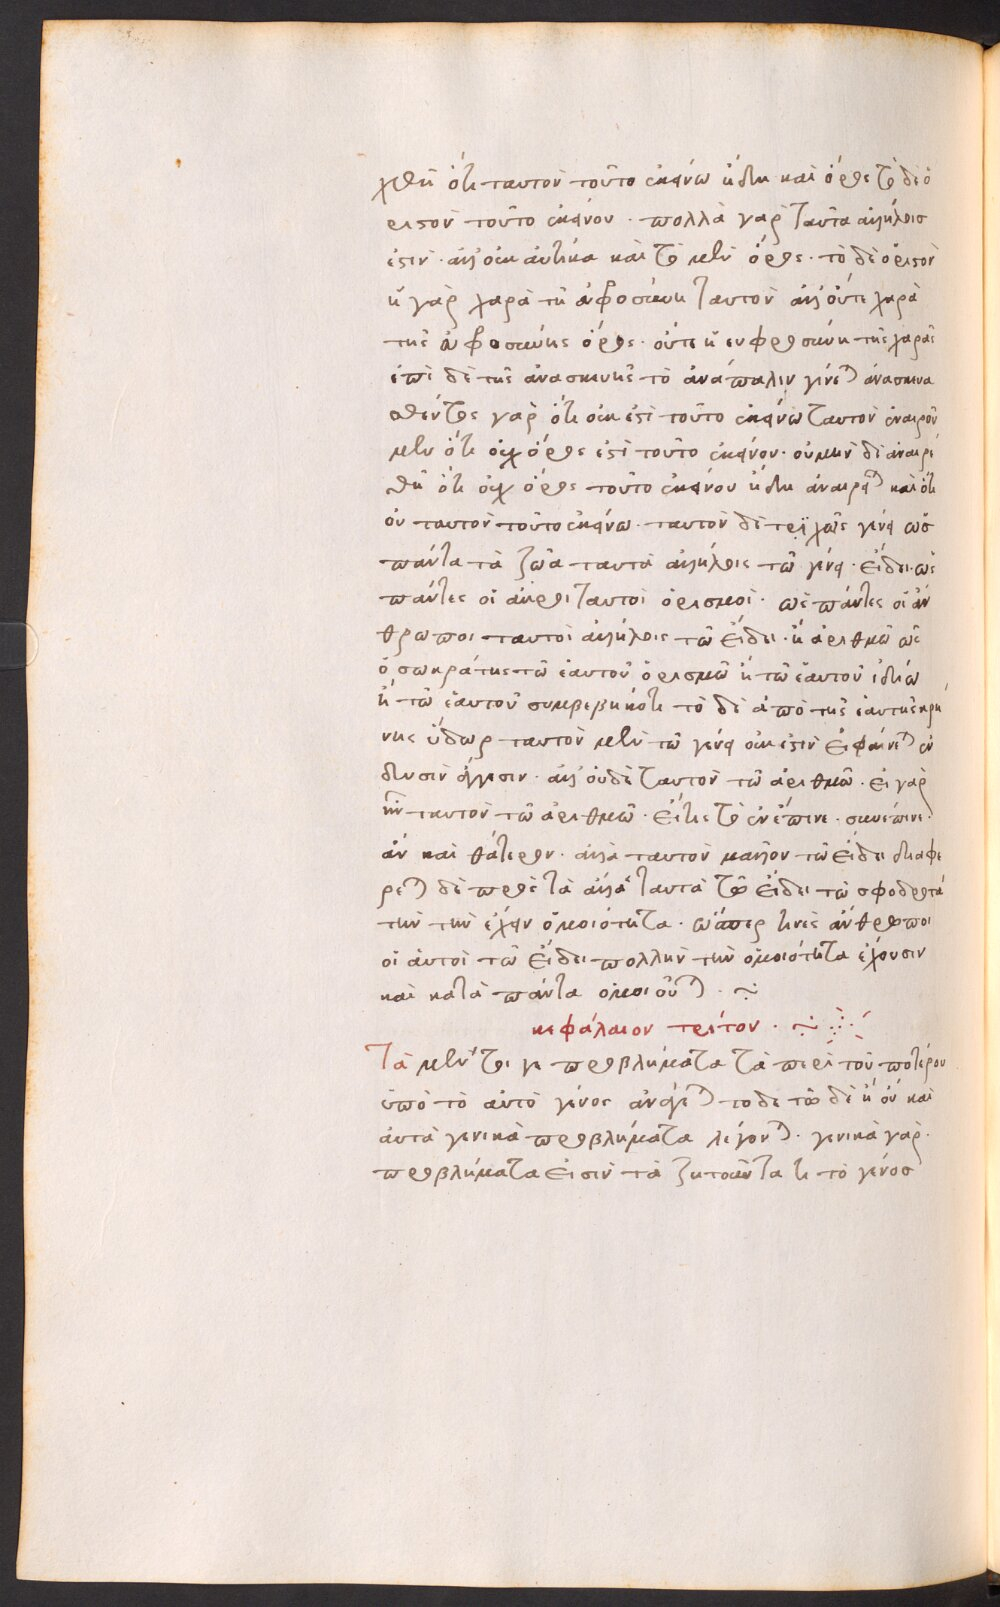 χθῆ ὅτι ταυτὸν τοῦτο ἐκείνω ἤδη καὶ ὅρος τὸ δὲ ὁ
ριστὸν τοῦτο ἐκείνου · πολλὰ γὰρ ταῦτα ἀλλήλοισ
ἐστιν · ἀλλ οὐκ αὐτίκα καὶ τὸ μὲν ὅρος · τὸ δὲ ὁριστὸν
ἡ γὰρ χαρὰ τῆ εὐφροσύνη ταυτὸν ἀλλ οὔτε χαρὰ
τῆς εὐφροσύνης ὅρος · οὔτε ἡ ευφροσύνη τῆς χαρᾶς
ἐπὶ δὲ τῆς ἀνασκευῆς τὸ ἀνάπαλιν γίνεται ἀνασκευα
σθέντος γαρ ὅτι οὐκ ἐστὶ τοῦτο ἐκείνω ταυτὸν ἀναιροῦ
μεν ὅτι οὐχ ὅρος ἐστὶ τοῦτο ἐκείνου · οὐ μὴν δὲ ἀναιρε
θῆ ὅτι οὐχ ὅρος τοῦτο ἐκείνου ἤδη ἀναιρεῖται καὶ ὅτι
οὐ ταυτὸν τοῦτο ἐκείνω · ταυτὸν δὲ τριχῶς γένει ὡσ
πάντα τὰ ζῶα ταυτὰ ἀλλήλοις τῶ γένει · εἴδει · ὡς
πάντες οἱ ταυτοὶ ὁρισμοί · ὡς πάντες οἱ ἄν
θρωποι ταυτοὶ ἀλλήλοις τῶ εἴδει · ἢ ἀριθμῶ ὡς
ὁ σωκράτης τῶ ἑαυτοῦ ὁρισμῶ ἢ τῶ ἑαυτοῦ ἰδίω
ἢ τῶ ἑαυτοῦ συμβεβηκότι τὸ δὲ ἀπὸ τῆς ἑαυτῆς κρή
νης ὕδωρ ταυτὸν μὲν τῶ γένει οὐκ ἐστιν εἰ φαίνεται ἐν
δυσὶν ἄγγεσιν · ἀλλ οὐδὲ ταυτὸν τῶ ἀριθμῶ · εἰ γὰρ
ἦν ταυτὸν τῶ ἀριθμῶ · εἴ τις τὸ ἓν ἔπινε · συνέπινε ·
ἂν καὶ θάτερον · ἀλλὰ ταυτὸν μᾶλλον τῶ εἴδει διαφέ
ρεται δὲ πρὸς τὰ ἄλλα ταυτὰ τῶ εἴδει τῶ σφοδροτά
την τὴν ἔχειν ὁμοιότητα · ὥσπερ τινὲς ἄνθρωποι
οἱ αὐτοὶ τῶ εἴδει πολλὴν τὴν ὁμοιότητα ἔχουσιν
καὶ κατὰ πάντα ὁμοιοῦνται ·
κεφάλαιον τρίτον ·
Τὰ μέν τοι γε προβλήματα τὰ περὶ τοῦ πότερον
ὑπὸ τὸ αὐτὸ γένος ἀνάγεται τόδε τῶ δὲ ἢ οὔ καὶ
αὐτὰ γενικὰ προβλήματα λέγονται · γενικὰ γαρ ·
προβλήματα εἰσιν τὰ ζητοῦντα τί τὸ γένοσ